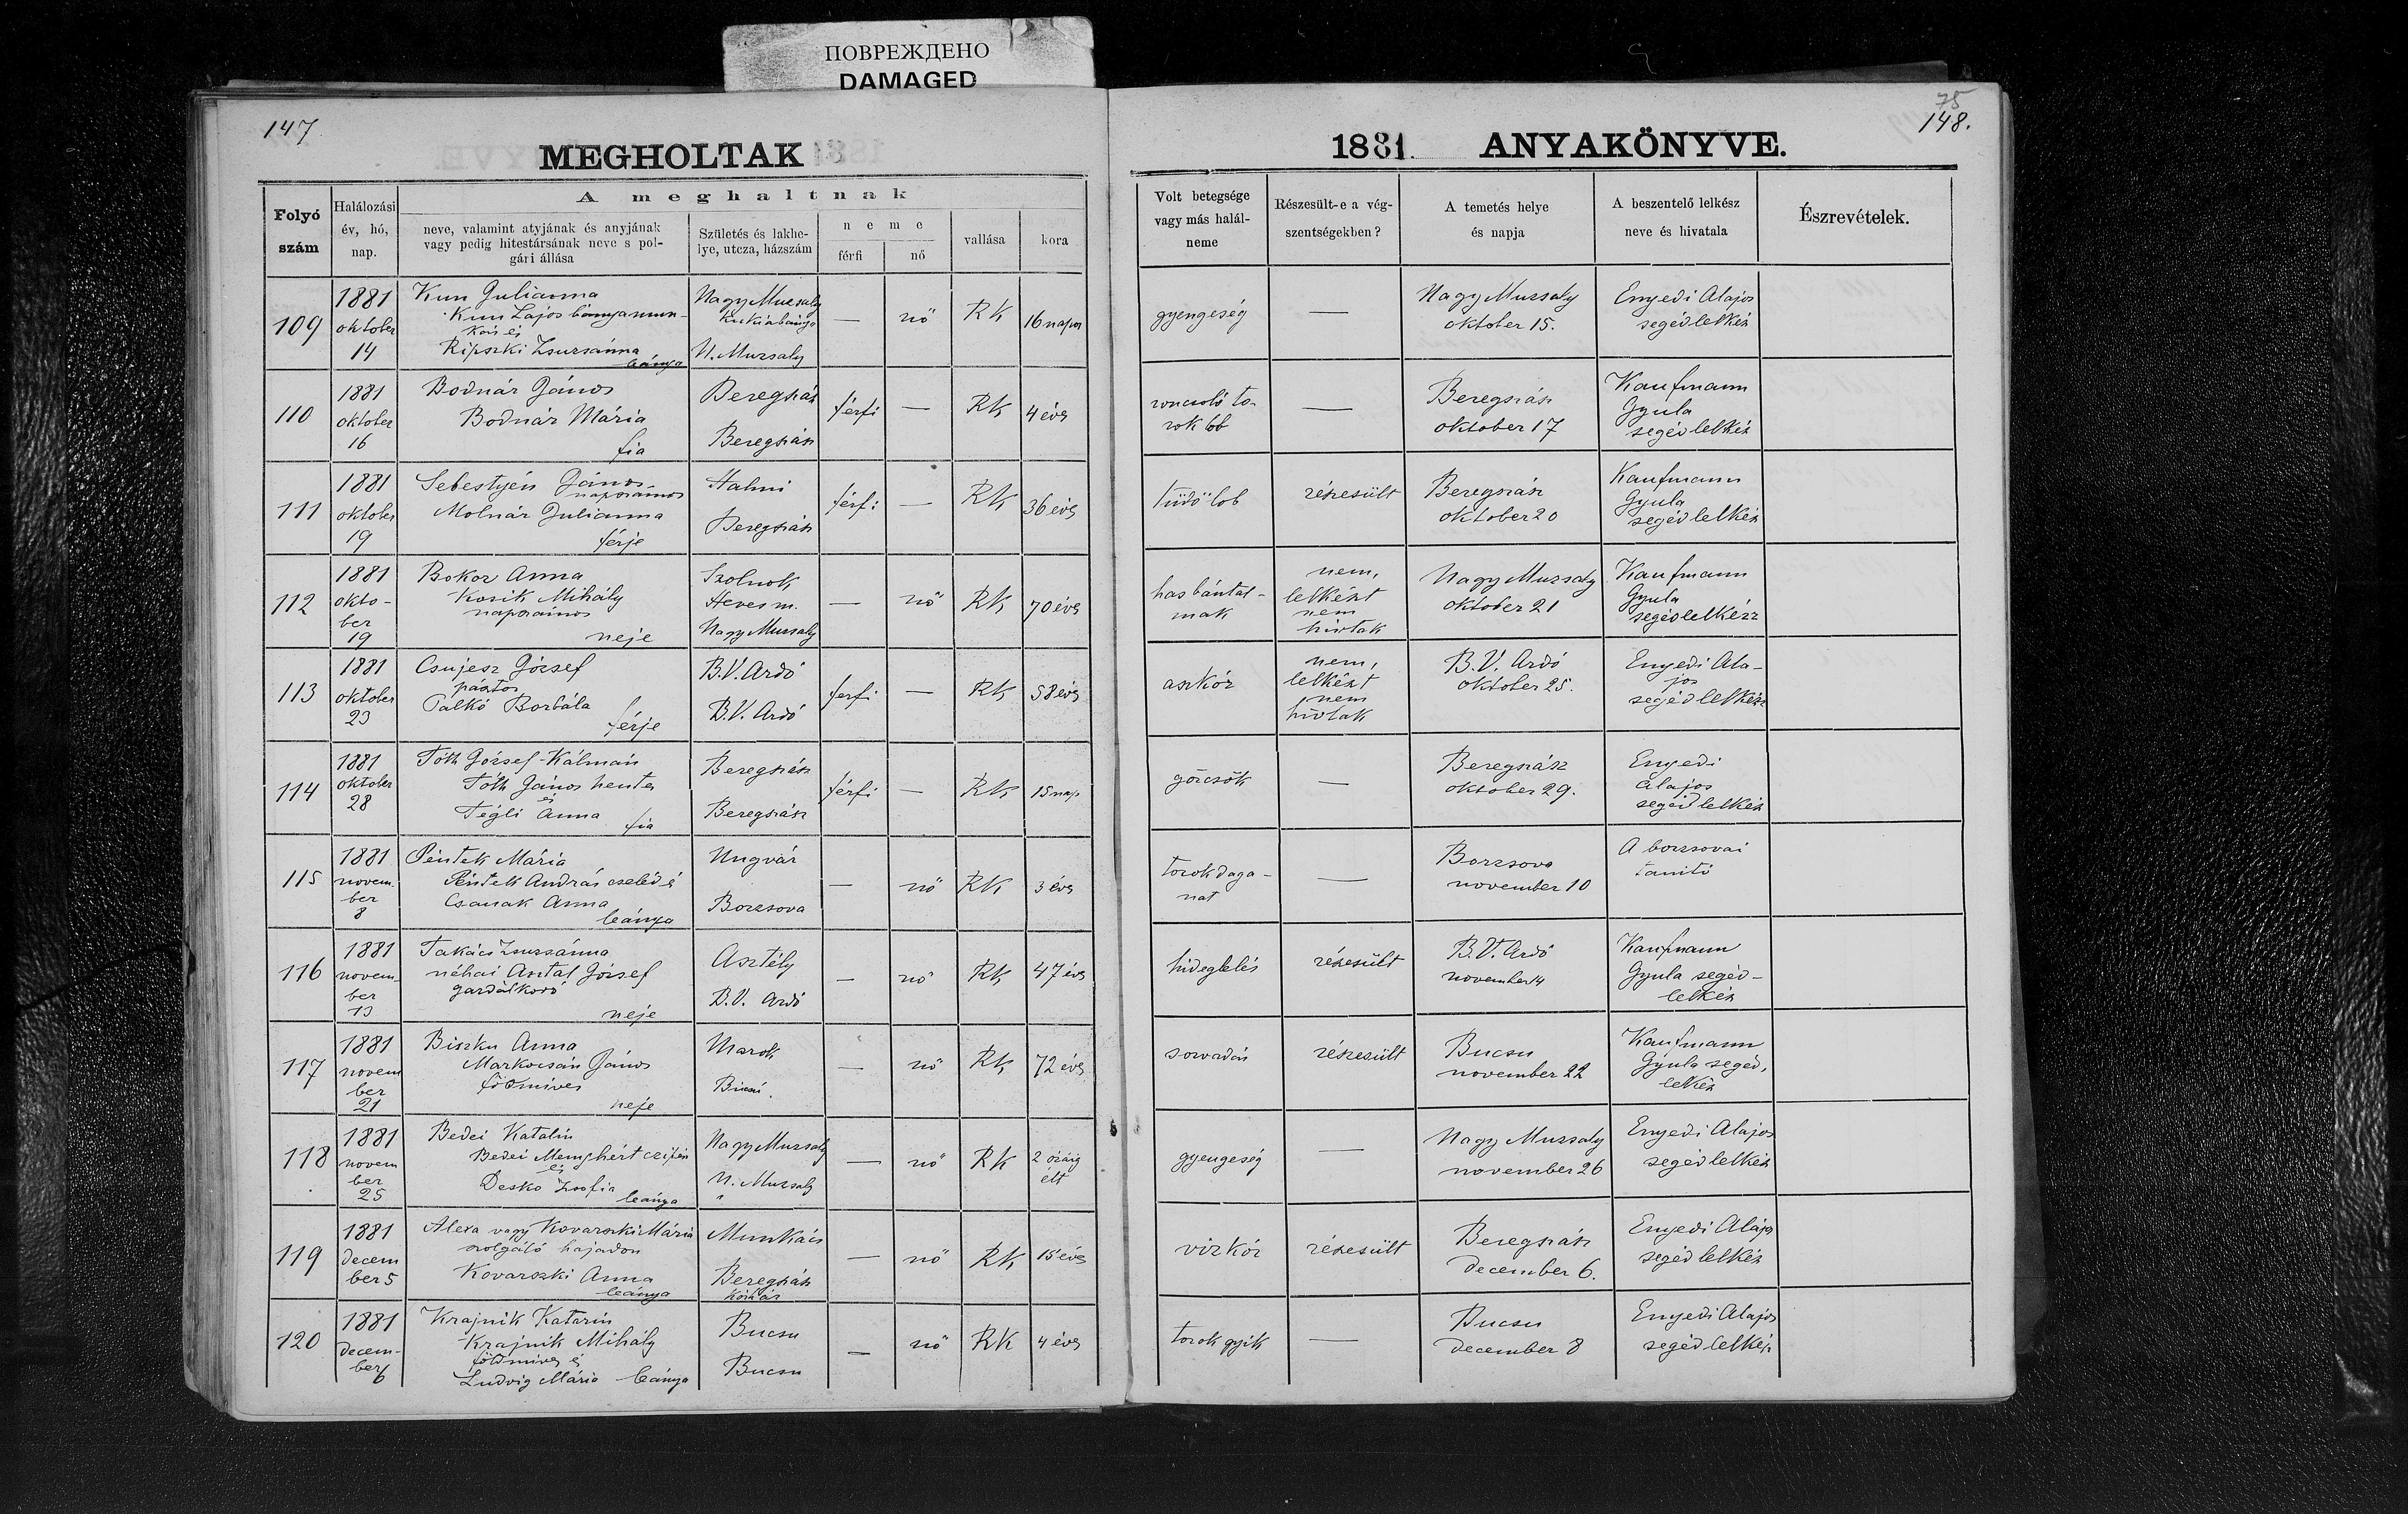 ПОВРЕЖДЕНО
DAMAGED
147
MEGHOLTAK
Folyó szám
Halálozási év, hó, nap.
A meghaltnak
neve, valamint atyjának és anyjának vagy pedig hitestársának neve s polgári állása
Születés és lakhelye, utcza, házszám
neme
férfi
nő
vallása
kora
75
148.
1881. ANYAKÖNYVE.
Volt betegsége vagy más halálneme
Részesült-e a végszentségekben?
A temetés helye és napja
A beszentelő lelkész neve és hivatala
Észrevételek.
109
1881 oktober 14
Kun Julianna
Kun Lajos bányamunkás és
Ripszki Zsuzsánna leánya
Nagy Muzsaly
N. Muzsaly
— nő RK 16 napos
gyengeség
—
Nagy Muzsaly oktober 15.
Enyedi Alajos segédlelkész
110
1881 oktober 16
Bodnár János
Bodnár Mária
fia
Beregszász
Beregszász
férfi — RK 4 éves
roncsoló toroklob
—
Beregszász oktober 17
Kaufmann Gyula segédlelkész
111
1881 oktober 19
Sebestyén János napszámos
Molnár Julianna
férje
Halmi
Beregszász
férfi — RK 36 éves
tüdőlob
részesült
Beregszász oktober 20
Kaufmann Gyula segédlelkész
112
1881 október 19
Bokor Anna
Kosik Mihály napszámos
neje
Szolnok Heves m.
Nagy Muzsaly
— nő RK 70 éves
hasbántalmak
nem, lelkészt nem hívtak
Nagy Muzsaly oktober 21
Kaufmann Gyula segédlelkész
113
1881 oktober 23
Csujesz József
pásztor
Palkó Borbála
férje
B.V. Ardó
B.V. Ardó
férfi — RK 58 éves
aszkór
nem, lelkészt nem hívtak
B.V. Ardó oktober 25.
Enyedi Alajos segédlelkész
114
1881 oktober 28
Tóth József-Kálmán
Tóth János hentes
és
Tégli Anna fia
Beregszász
Beregszász
férfi — RK 15 nap
görcsök
—
Beregszász oktober 29.
Enyedi Alajos segédlelkész
115
1881 november 8
Péntek Mária
Péntek András cseléd és
Csanak Anna
leánya
Ungvár
Borzsova
— nő RK 3 éves
torokdaganat
—
Borzsova november 10
A borzsovai tanító
116
1881 november 13
Takács Zsuzsánna
néhai Asztal József
neje
Asztély
B.V. Ardó
— nő RK 47 éves
hideglelés
részesült
B.V. Ardó november 14
Kaufmann Gyula segédlelkész
117
1881 november 21
Biszku Anna
Markocsán János
földmíves
neje
Marok
Bucsú.
— nő RK 72 éves
sorvadás
részesült
Bucsu november 22
Kaufmann Gyula segédlelkész
118
1881 november 25
Bedei Katalin
Bedei Menyhért
és
Desko Zsofia leánya
Nagy Muzsaly
N. Muzsaly
— nő RK 2 óráig élt
gyengeség
—
Nagy Muzsaly november 26
Enyedi Alajos segédlelkész
119
1881 december 5
Alexa vagy Kovarszki Mária
szolgáló hajadon
Kovarszki Anna
leánya
Munkács
Beregszász kórház
— nő RK 15 éves
vizkór
részesült
Beregszász december 6.
Enyedi Alajos segédlelkész
120
1881 december 6
Krajnik Katarin
Krajnik Mihály
földmíves és
Ludvig Mária leánya
Bucsu
Bucsu
— nő RK 4 éves
torokgyik
—
Bucsu december 8
Enyedi Alajos segédlelkész